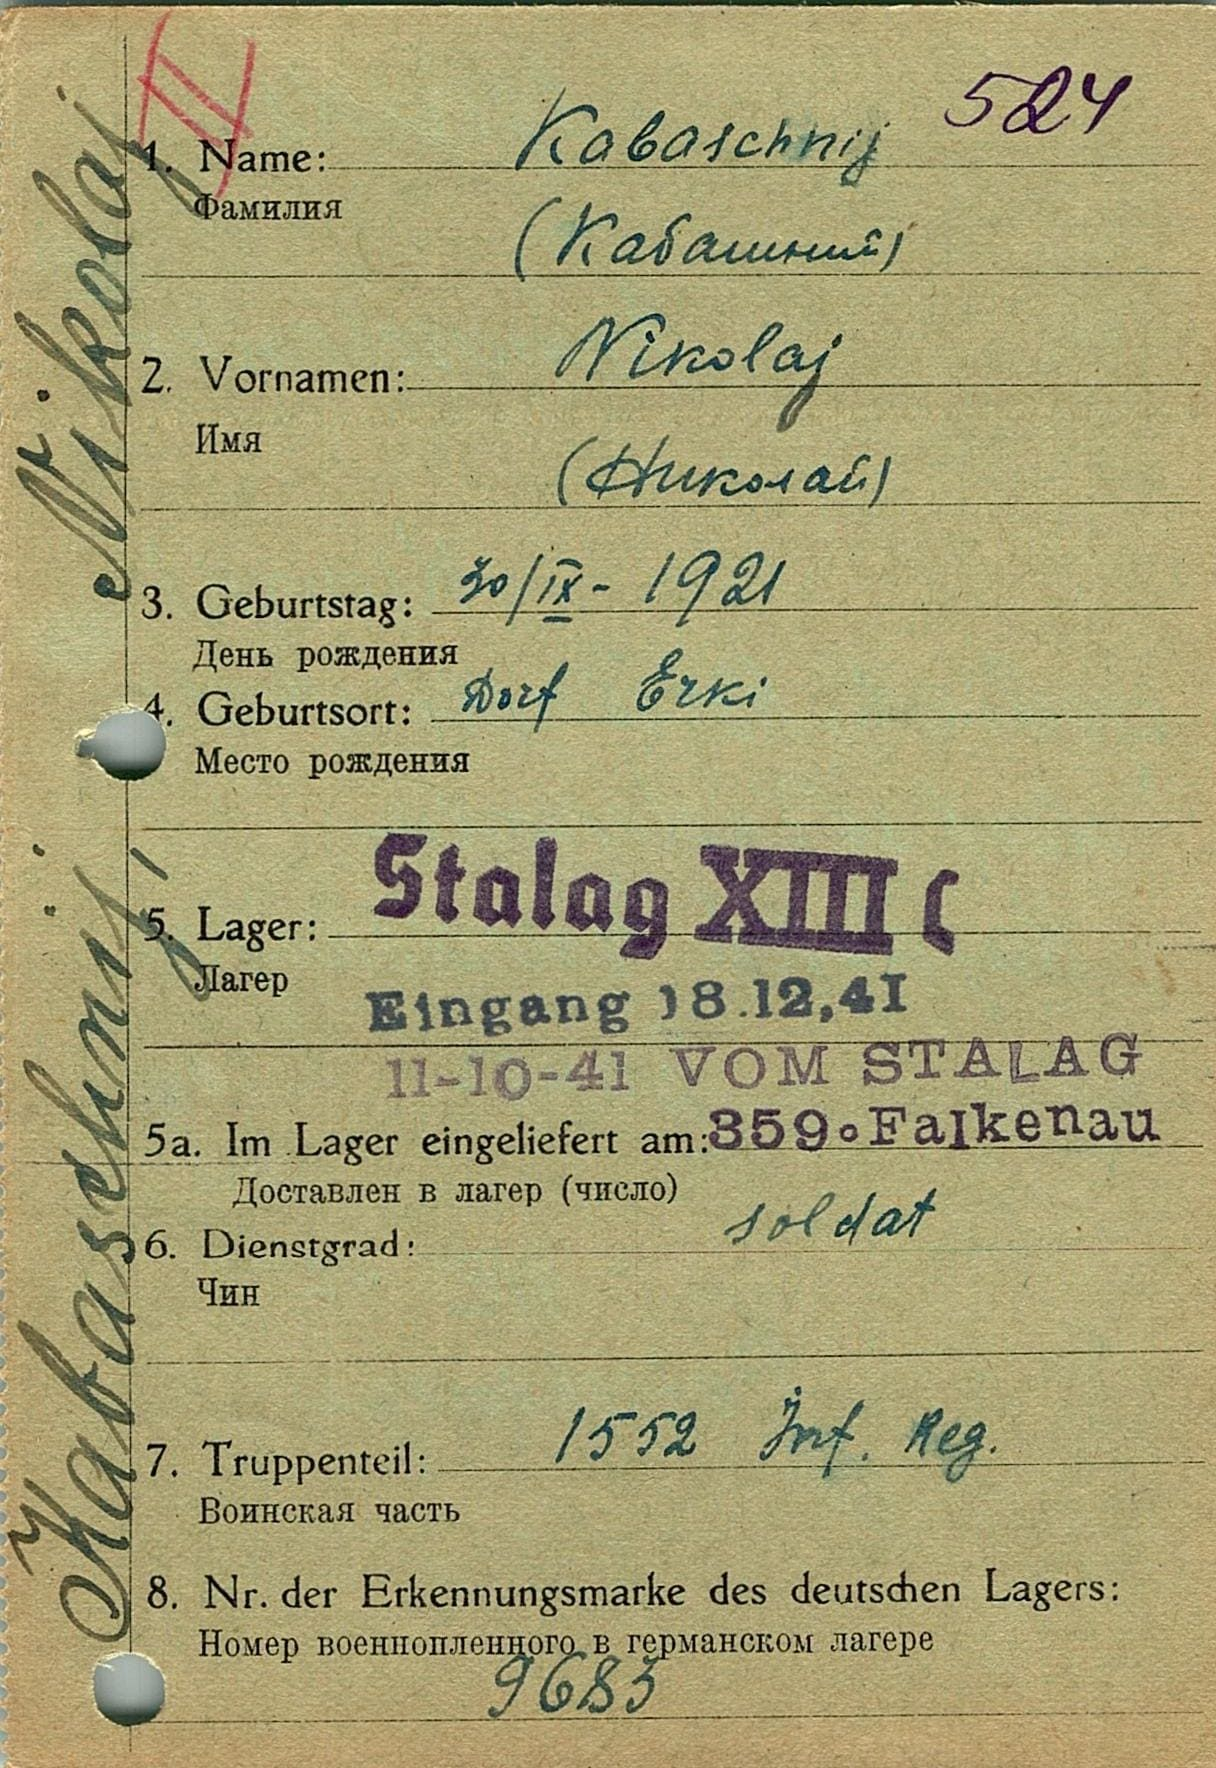 II
524
1. Name: Kabaschnij
Фамилия
(Кабашний)
2. Vornamen: Nikolaj
Имя
(Николай)
3. Geburtstag: 30/IX - 1921
День рождения
4. Geburtsort: Dorf Erki
Место рождения
5. Lager: Stalag XIII C
Лагер
Eingang 18.12,41
11-10-41 VOM STALAG
5a. Im Lager eingeliefert am: 359. Falkenau
Доставлен в лагер (число)
6. Dienstgrad: soldat
Чин
7. Truppenteil: 1552 Inf. Reg.
Воинская часть
8. Nr. der Erkennungsmarke des deutschen Lagers:
Номер военнопленного в германском лагере
9683
Kabaschnij, Nikolaj